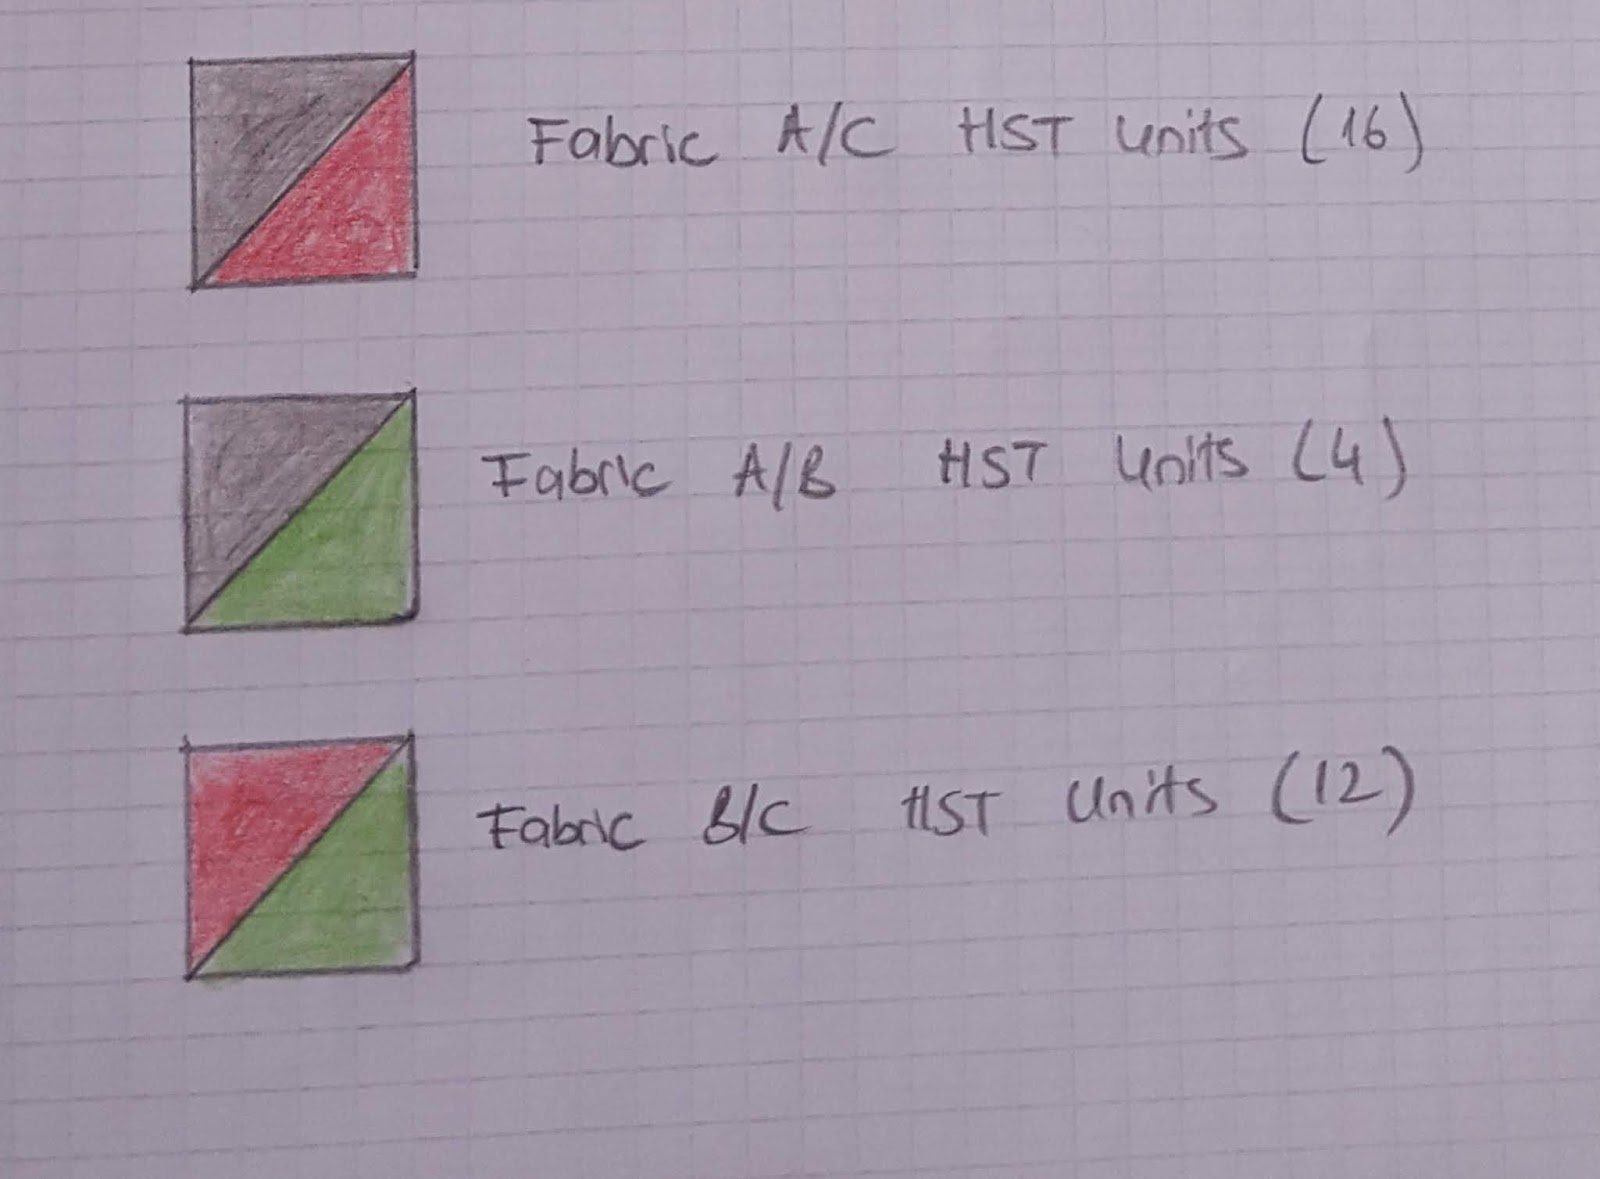 Fabric A/C HST Units (16)
Fabric A/B HST Units (4)
Fabric B/C HST Units (12)